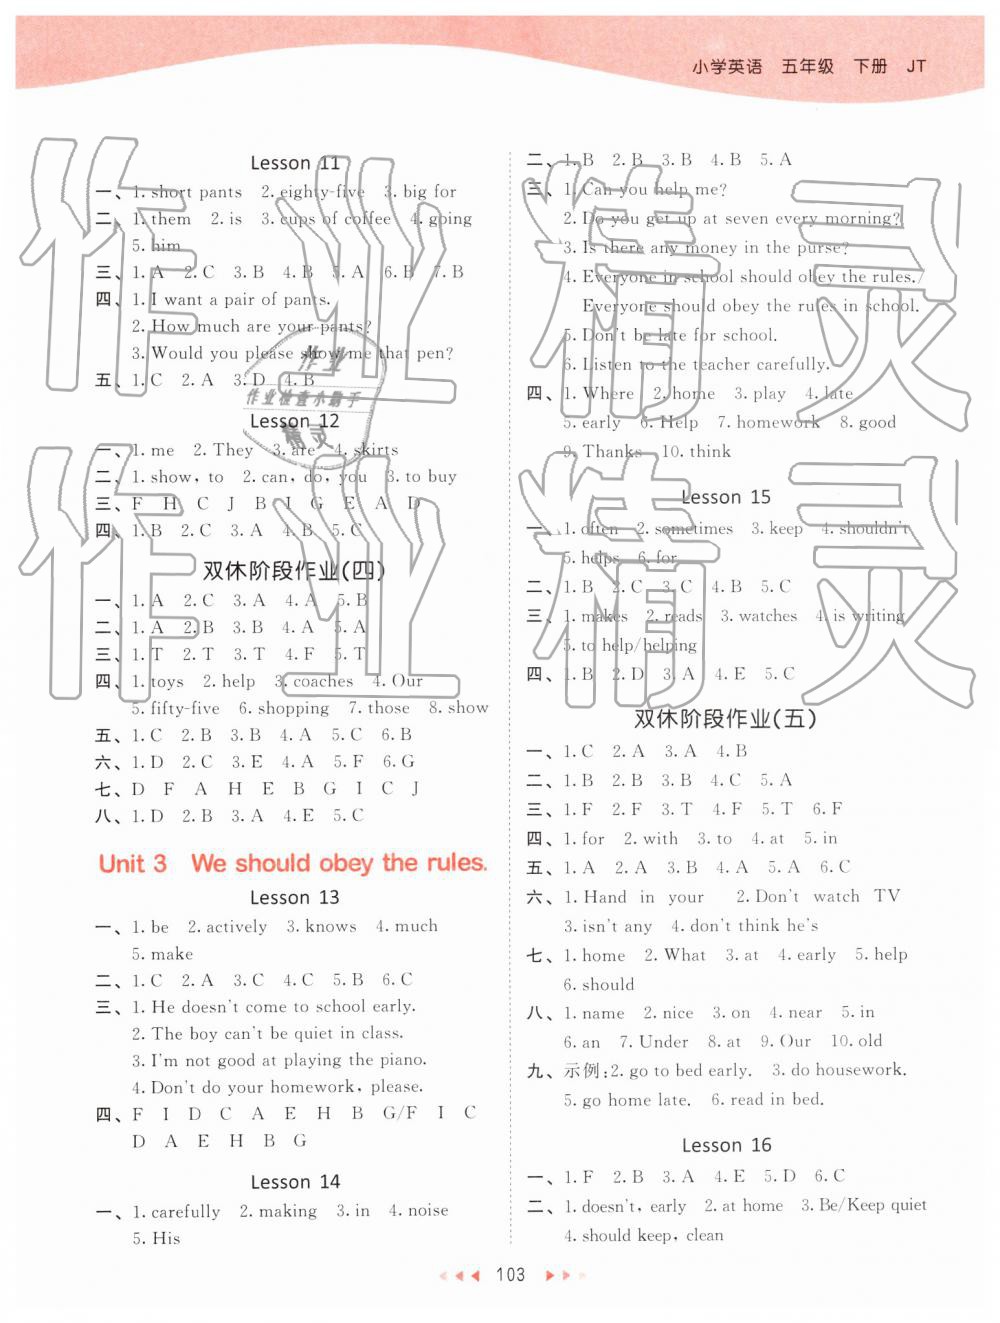 小学英语 五年级 下册 JT
Lesson 11
一、1. short pants 2. eighty-five 3. big for
二、1. them 2. is 3. cups of coffee 4. going
5. him
三、1. A 2. C 3. B 4. B 5. A 6. B 7. B
四、1. I want a pair of pants.
2. How much are your pants?
3. Would you please show me that pen?
五、1. C 2. A 3. D 4. B
Lesson 12
一、1. me 2. They 3. are 4. skirts
二、1. show, to 2. can, do, you 3. to buy
三、F H C J B I G E A D
四、1. B 2. C 3. A 4. B 5. C
双休阶段作业(四)
一、1. A 2. C 3. A 4. A 5. B
二、1. A 2. B 3. B 4. A 5. A
三、1. T 2. T 3. T 4. F 5. T
四、1. toys 2. help 3. coaches 4. Our
5. fifty-five 6. shopping 7. those 8. show
五、1. C 2. B 3. B 4. A 5. C 6. B
六、1. D 2. C 3. E 4. A 5. F 6. G
七、D F A H E B G I C J
八、1. D 2. B 3. A 4. E 5. C
Unit 3 We should obey the rules.
Lesson 13
一、1. be 2. actively 3. knows 4. much
5. make
二、1. C 2. A 3. C 4. C 5. B 6. C
三、1. He doesn't come to school early.
2. The boy can't be quiet in class.
3. I'm not good at playing the piano.
4. Don't do your homework, please.
四、F I D C A E H B G/F I C
D A E H B G
Lesson 14
一、1. carefully 2. making 3. in 4. noise
5. His
二、1. B 2. B 3. B 4. B 5. A
三、1. Can you help me?
2. Do you get up at seven every morning?
3. Is there any money in the purse?
4. Everyone in school should obey the rules./
Everyone should obey the rules in school.
5. Don't be late for school.
6. Listen to the teacher carefully.
四、1. Where 2. home 3. play 4. late
5. early 6. Help 7. homework 8. good
9. Thanks 10. think
Lesson 15
一、1. often 2. sometimes 3. keep 4. shouldn't
5. helps 6. for
二、1. B 2. C 3. C 4. B 5. C
三、1. makes 2. reads 3. watches 4. is writing
5. to help/helping
四、1. B 2. D 3. A 4. E 5. C
双休阶段作业(五)
一、1. C 2. A 3. A 4. B
二、1. B 2. B 3. B 4. C 5. A
三、1. F 2. F 3. T 4. F 5. T 6. F
四、1. for 2. with 3. to 4. at 5. in
五、1. A 2. A 3. B 4. A 5. A 6. C
六、1. Hand in your 2. Don't watch TV
3. isn't any 4. don't think he's
七、1. home 2. What 3. at 4. early 5. help
6. should
八、1. name 2. nice 3. on 4. near 5. in
6. an 7. Under 8. at 9. Our 10. old
九、示例:2. go to bed early. 3. do housework.
5. go home late. 6. read in bed.
Lesson 16
一、1. F 2. B 3. A 4. E 5. D 6. C
二、1. doesn't, early 2. at home 3. Be/Keep quiet
4. should keep, clean
103
作业精灵
作业精灵
作业
作业检查小助手
精灵